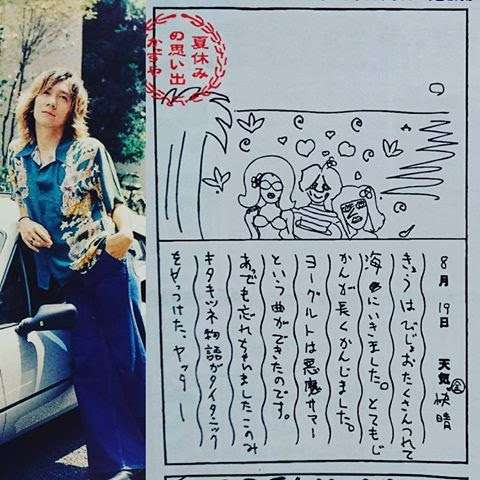 夏休み
の思い出
かずや
8月 19日 天気 快晴
きょうはびじょおたくさんつれて
海にいきました。とてもじ
かんが長くかんじました。
ヨーグルトは悪魔サマー
という曲ができたのです。
あっでも忘れちゃいました
キタキツネ物語がタイタニック
をやっつけた、ヤッター